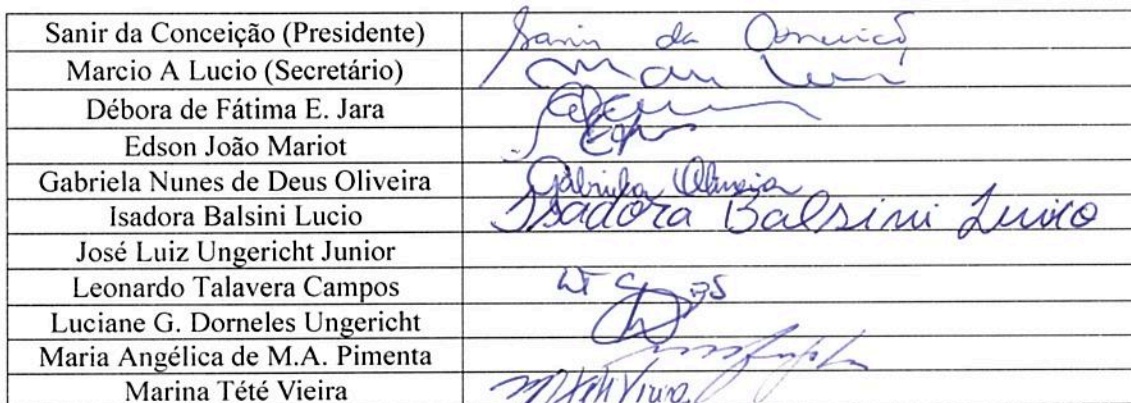 Sanir da Conceição (Presidente) Sanir da Conceiçã
Marcio A Lucio (Secretário)
Débora de Fátima E. Jara
Edson João Mariot
Gabriela Nunes de Deus Oliveira Gabriela Oliveira
Isadora Balsini Lucio Isadora Balsini Lucio
José Luiz Ungericht Junior
Leonardo Talavera Campos
Luciane G. Dorneles Ungericht
Maria Angélica de M.A. Pimenta
Marina Tété Vieira MTété Vieira